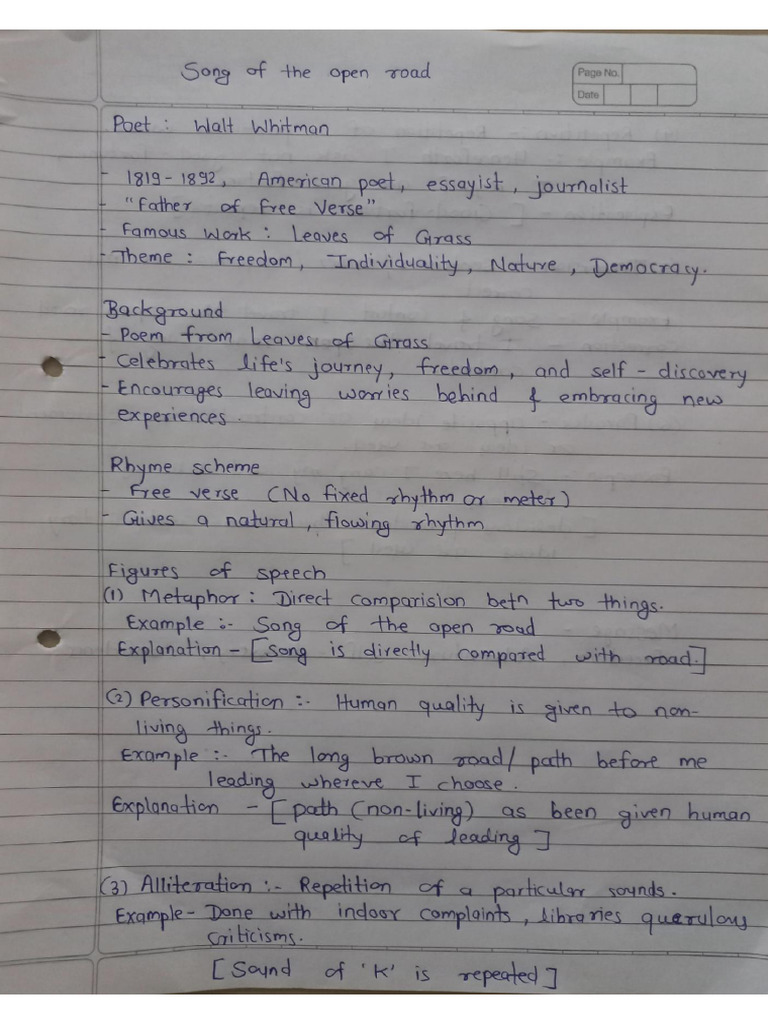 Song of the open road
Page No.
Date
Poet : Walt Whitman
- 1819 - 1892, American poet, essayist, journalist
- "Father of Free Verse"
- Famous Work : Leaves of Grass
- Theme : Freedom, Individuality, Nature, Democracy.
Background
- Poem from Leaves of Grass
- Celebrates life's journey, freedom, and self - discovery
- Encourages leaving worries behind & embracing new
experiences.
Rhyme scheme
- Free verse (No fixed rhythm or meter)
- Gives a natural, flowing rhythm
Figures of speech
(1) Metaphor : Direct comparision betn two things.
Example :- Song of the open road
Explanation - [Song is directly compared with road.]
(2) Personification :- Human quality is given to non-
living things.
Example :- The long brown road/ path before me
leading918 whereve I choose.
Explanation - [path (non-living) as been given human
quality of leading]
(3) Alliteration :- Repetition of a particular sounds.
Example - Done with indoor complaints, libraries querulous
criticisms.
[Sound of 'K' is repeated]